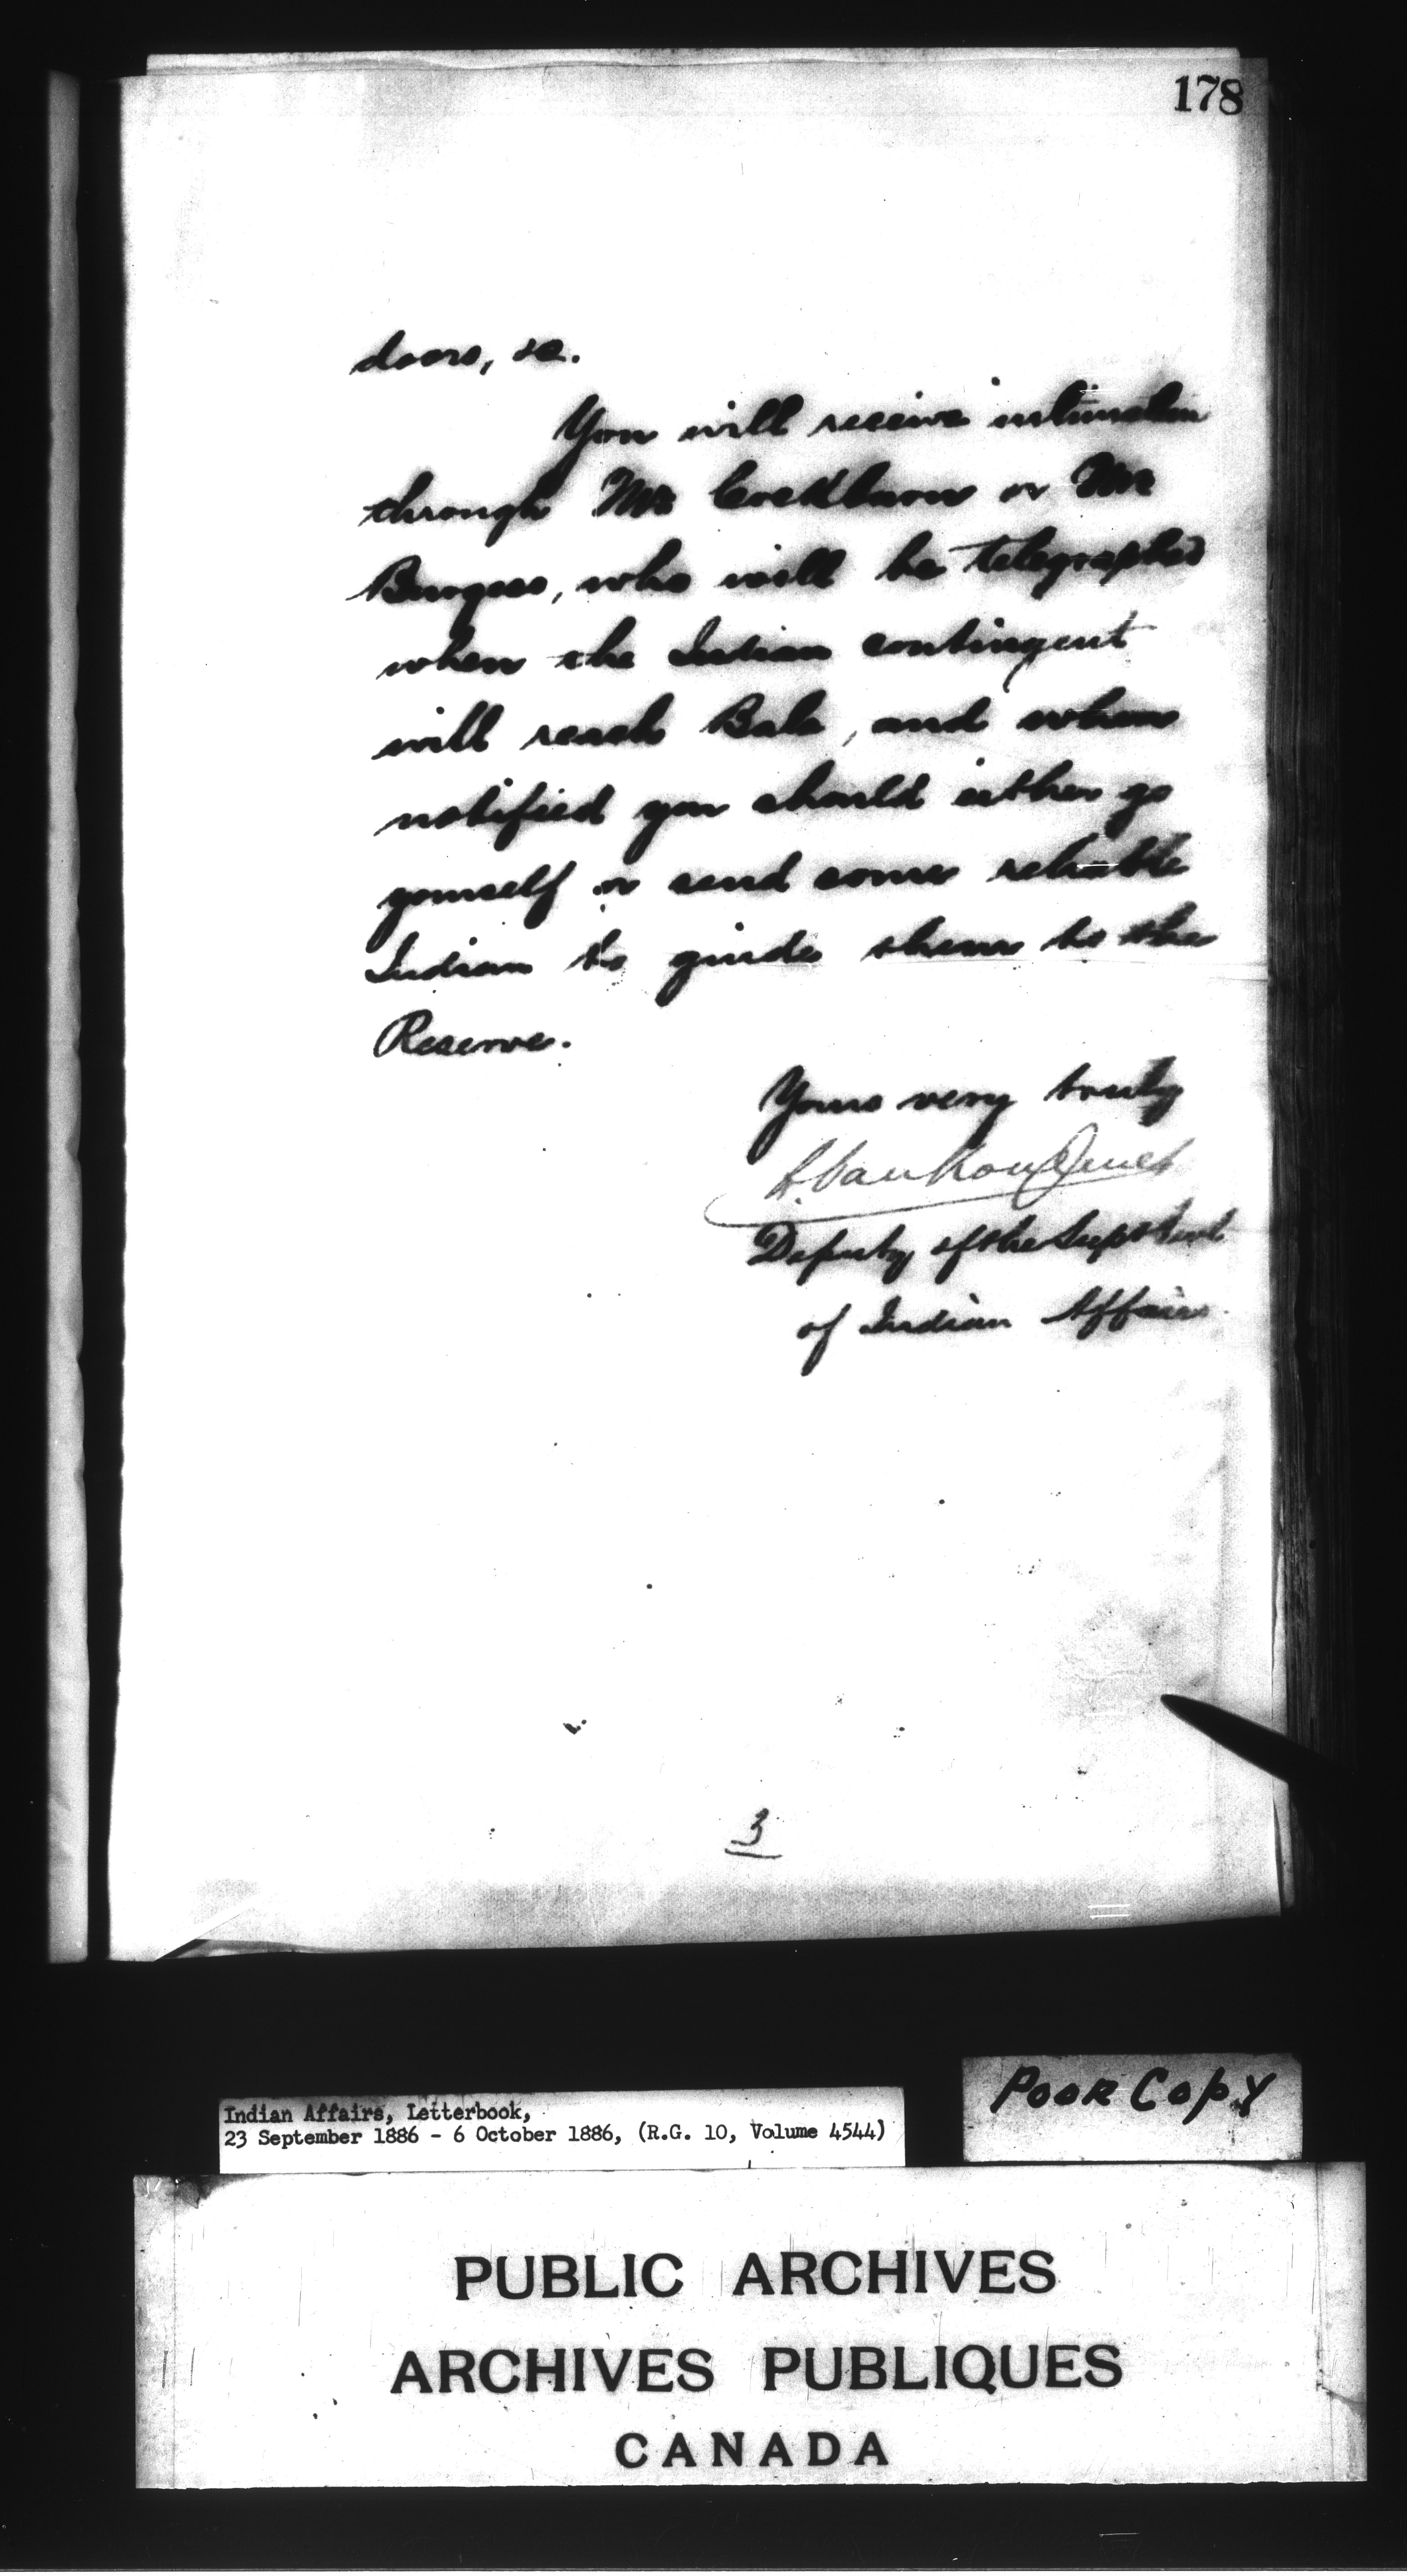 178
doors, &c.
You will receive intimation
through Mr Cockburn or Mr
Burgess, who will be telegraphed
when the Indian contingent
will reach Bala, and when
notified you should either go
yourself or send some reliable
Indian to guide them to the
Reserve.
Yours very truly
L. VanKoughnet
Deputy of the Supt Genl
of Indian Affairs
3
Poor Copy
Indian Affairs, Letterbook,
23 September 1886 - 6 October 1886, (R.G. 10, Volume 4544)
PUBLIC ARCHIVES
ARCHIVES PUBLIQUES
CANADA